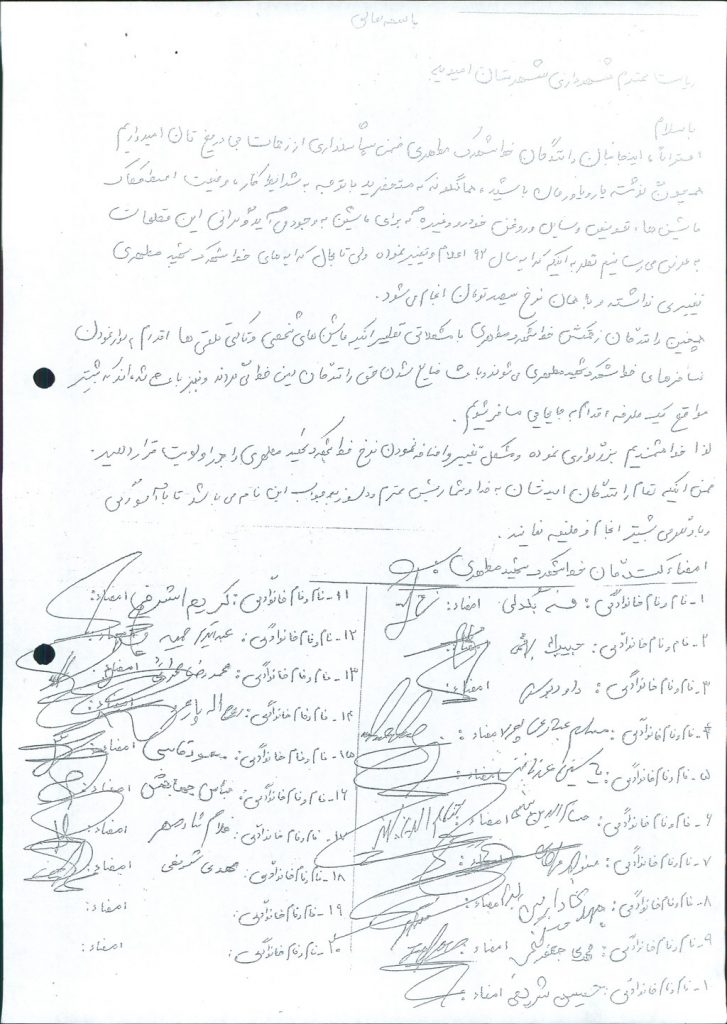 باسمه تعالی
ریاست محترم شهرداری شهرستان امیدیه
با سلام
احتراماً، اینجانبان رانندگان خط شهرک مطهری ضمن سپاسگذاری از زحمات بی دریغ تان امیدواریم
همچون گذشته یار و یاورمان باشید، همانگونه که مستحضرید با توجه به شرایط کار، وضعیت استهلاک
ماشین ها، تعویض وسایل و روغن خودرو و غیره که برای ماشین به وجود می آید و گرانی این قطعات
به عرض می رسانیم نظر به اینکه کرایه سال ۹۲ اعلام و تغییر نموده ولی تا بحال کرایه های خط شهرک شهید مطهری
تغییری نداشته و با همان نرخ سیصد تومان انجام می شود.
همچنین رانندگان زحمتکش خط شهرک مطهری با مشکلاتی نظیر اینکه ماشین های شخصی و تاکسی تلفنی ها اقدام به سوار نمودن
مسافرهای خط شهرک شهید مطهری می شوند و باعث ضایع شدن حق رانندگان بین خط می گردند و نیز باعث شده اند که بیشتر
مواقع یک طرفه اقدام به جابجایی مسافر شویم.
لذا خواهشمندیم بزرگواری نموده و مشکل تغییر و اضافه نمودن نرخ خط شهرک شهید مطهری را جزء اولویت قرار دهید.
ضمن اینکه تمام رانندگان امیدشان به خدا و شما رئیس محترم و دلسوز و جواب این نامه می باشد تا با آسودگی
و دلگرمی بیشتر انجام وظیفه نمایند.
امضاء کنندگان خط شهرک شهید مطهری:
۱- نام و نام خانوادگی: امضاء:
۲- نام و نام خانوادگی: حبیب امضاء:
۳- نام و نام خانوادگی: داود امضاء:
۴- نام و نام خانوادگی: مسلم امضاء:
۵- نام و نام خانوادگی: امضاء:
۶- نام و نام خانوادگی: حسام الدین امضاء: حسام الدین
۷- نام و نام خانوادگی: امضاء:
۸- نام و نام خانوادگی: امضاء:
۹- نام و نام خانوادگی: مهدی امضاء:
۱- نام و نام خانوادگی: حسین شریفی امضاء:
۱۱- نام و نام خانوادگی: کریم اشرفی امضاء:
۱۲- نام و نام خانوادگی: امضاء:
۱۳- نام و نام خانوادگی: محمدرضا امضاء:
۱۴- نام و نام خانوادگی: امضاء:
۱۵- نام و نام خانوادگی: مسعود قاسمی امضاء:
۱۶- نام و نام خانوادگی: عباس امضاء:
۱۷- نام و نام خانوادگی: غلام امضاء:
۱۸- نام و نام خانوادگی: مهدی شریفی امضاء:
۱۹- نام و نام خانوادگی: امضاء:
۲۰- نام و نام خانوادگی: امضاء: